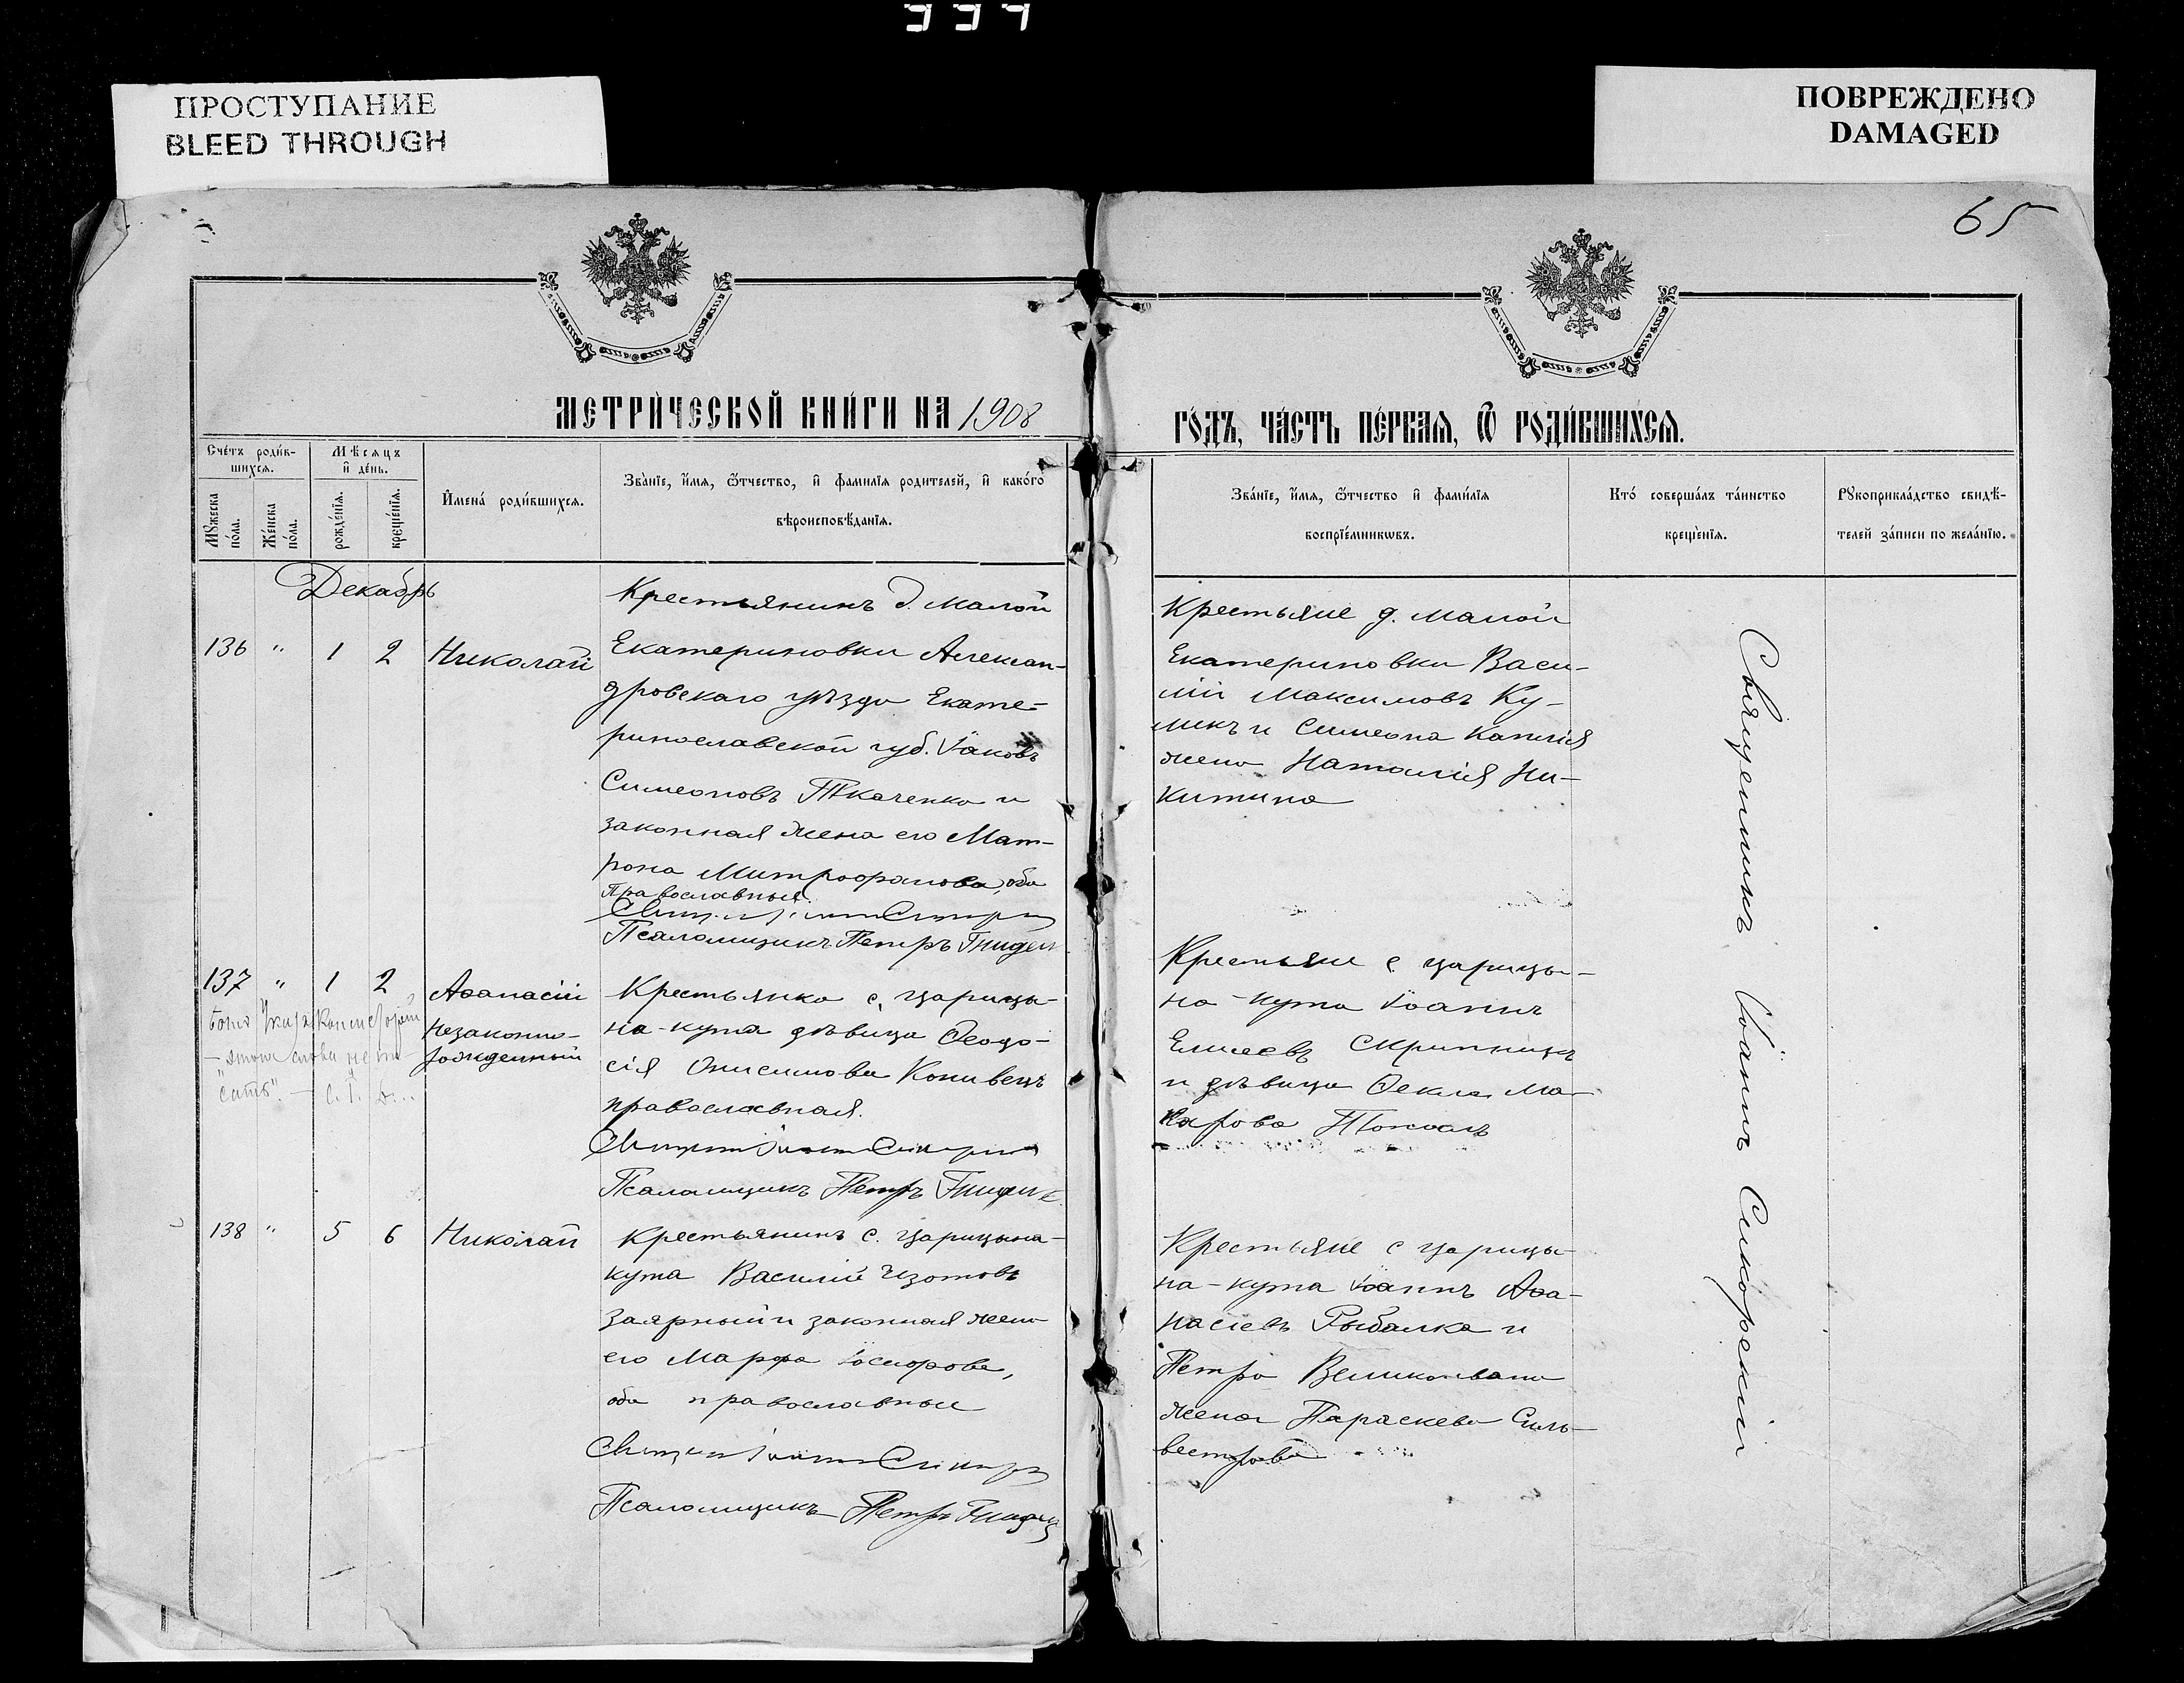 ПРОСТУПАНИЕ
BLEED THROUGH
ПОВРЕЖДЕНО
DAMAGED
65
МЕТРИЧЕСКОЙ КНИГИ НА 1908
ГОДЪ, ЧАСТЬ ПЕРВАЯ, Ѿ РОДИВШИХСЯ.
Счетъ родив-
шихся.
Мужеска
пола.
Женска
пола.
Мѣсяцъ
и день.
рожденія.
крещенія.
Имена родившихся.
Званіе, имя, ѿтчество, и фамилія родителей, и какого
вѣроисповѣданія.
Званіе, имя, ѿтчество и фамилія
воспріемникѡвъ.
Кто совершалъ таинство
крещенія.
Рукоприкладство свидѣ-
телей записи по желанію.
Декабрь
136 " 1 2 Николай
Крестьянинъ д. Малой
Екатериновки Алексан-
дровскаго уѣзда Екате-
ринославской губ. Іаковъ
Симеоновъ Ткаченко и
законная жена его Мат-
рона Митрофанова, оба
православные.
Псаломщикъ Петръ
Крестьяне д. Малой
Екатериновки Васи-
лій Максимовъ Ку-
ликъ и Симеона
жена Наталія Ни-
китина
137 " 1 2 Аѳанасій
незаконно-
рожденный
Крестьянка с. Царицы-
на-кута дѣвица Ѳеодо-
сія Онисимова
православная.
Псаломщикъ Петръ
Крестьяне с. Царицы-
на-кута Іоаннъ
Елисеевъ Скрипникъ
и дѣвица Ѳекла Ма-
карова
138 " 5 6 Николай
Крестьянинъ с. Царицына-
кута Василій Изотовъ
Заярный и законная жена
его Марфа Іосифова,
оба православные
Псаломщикъ Петръ
Крестьяне с Царицы-
на-кута Іоаннъ Аѳа-
насіевъ Рыбалка и
Петра
жена Параскева Силь-
вестрова
Священникъ Іоаннъ Сикорскій